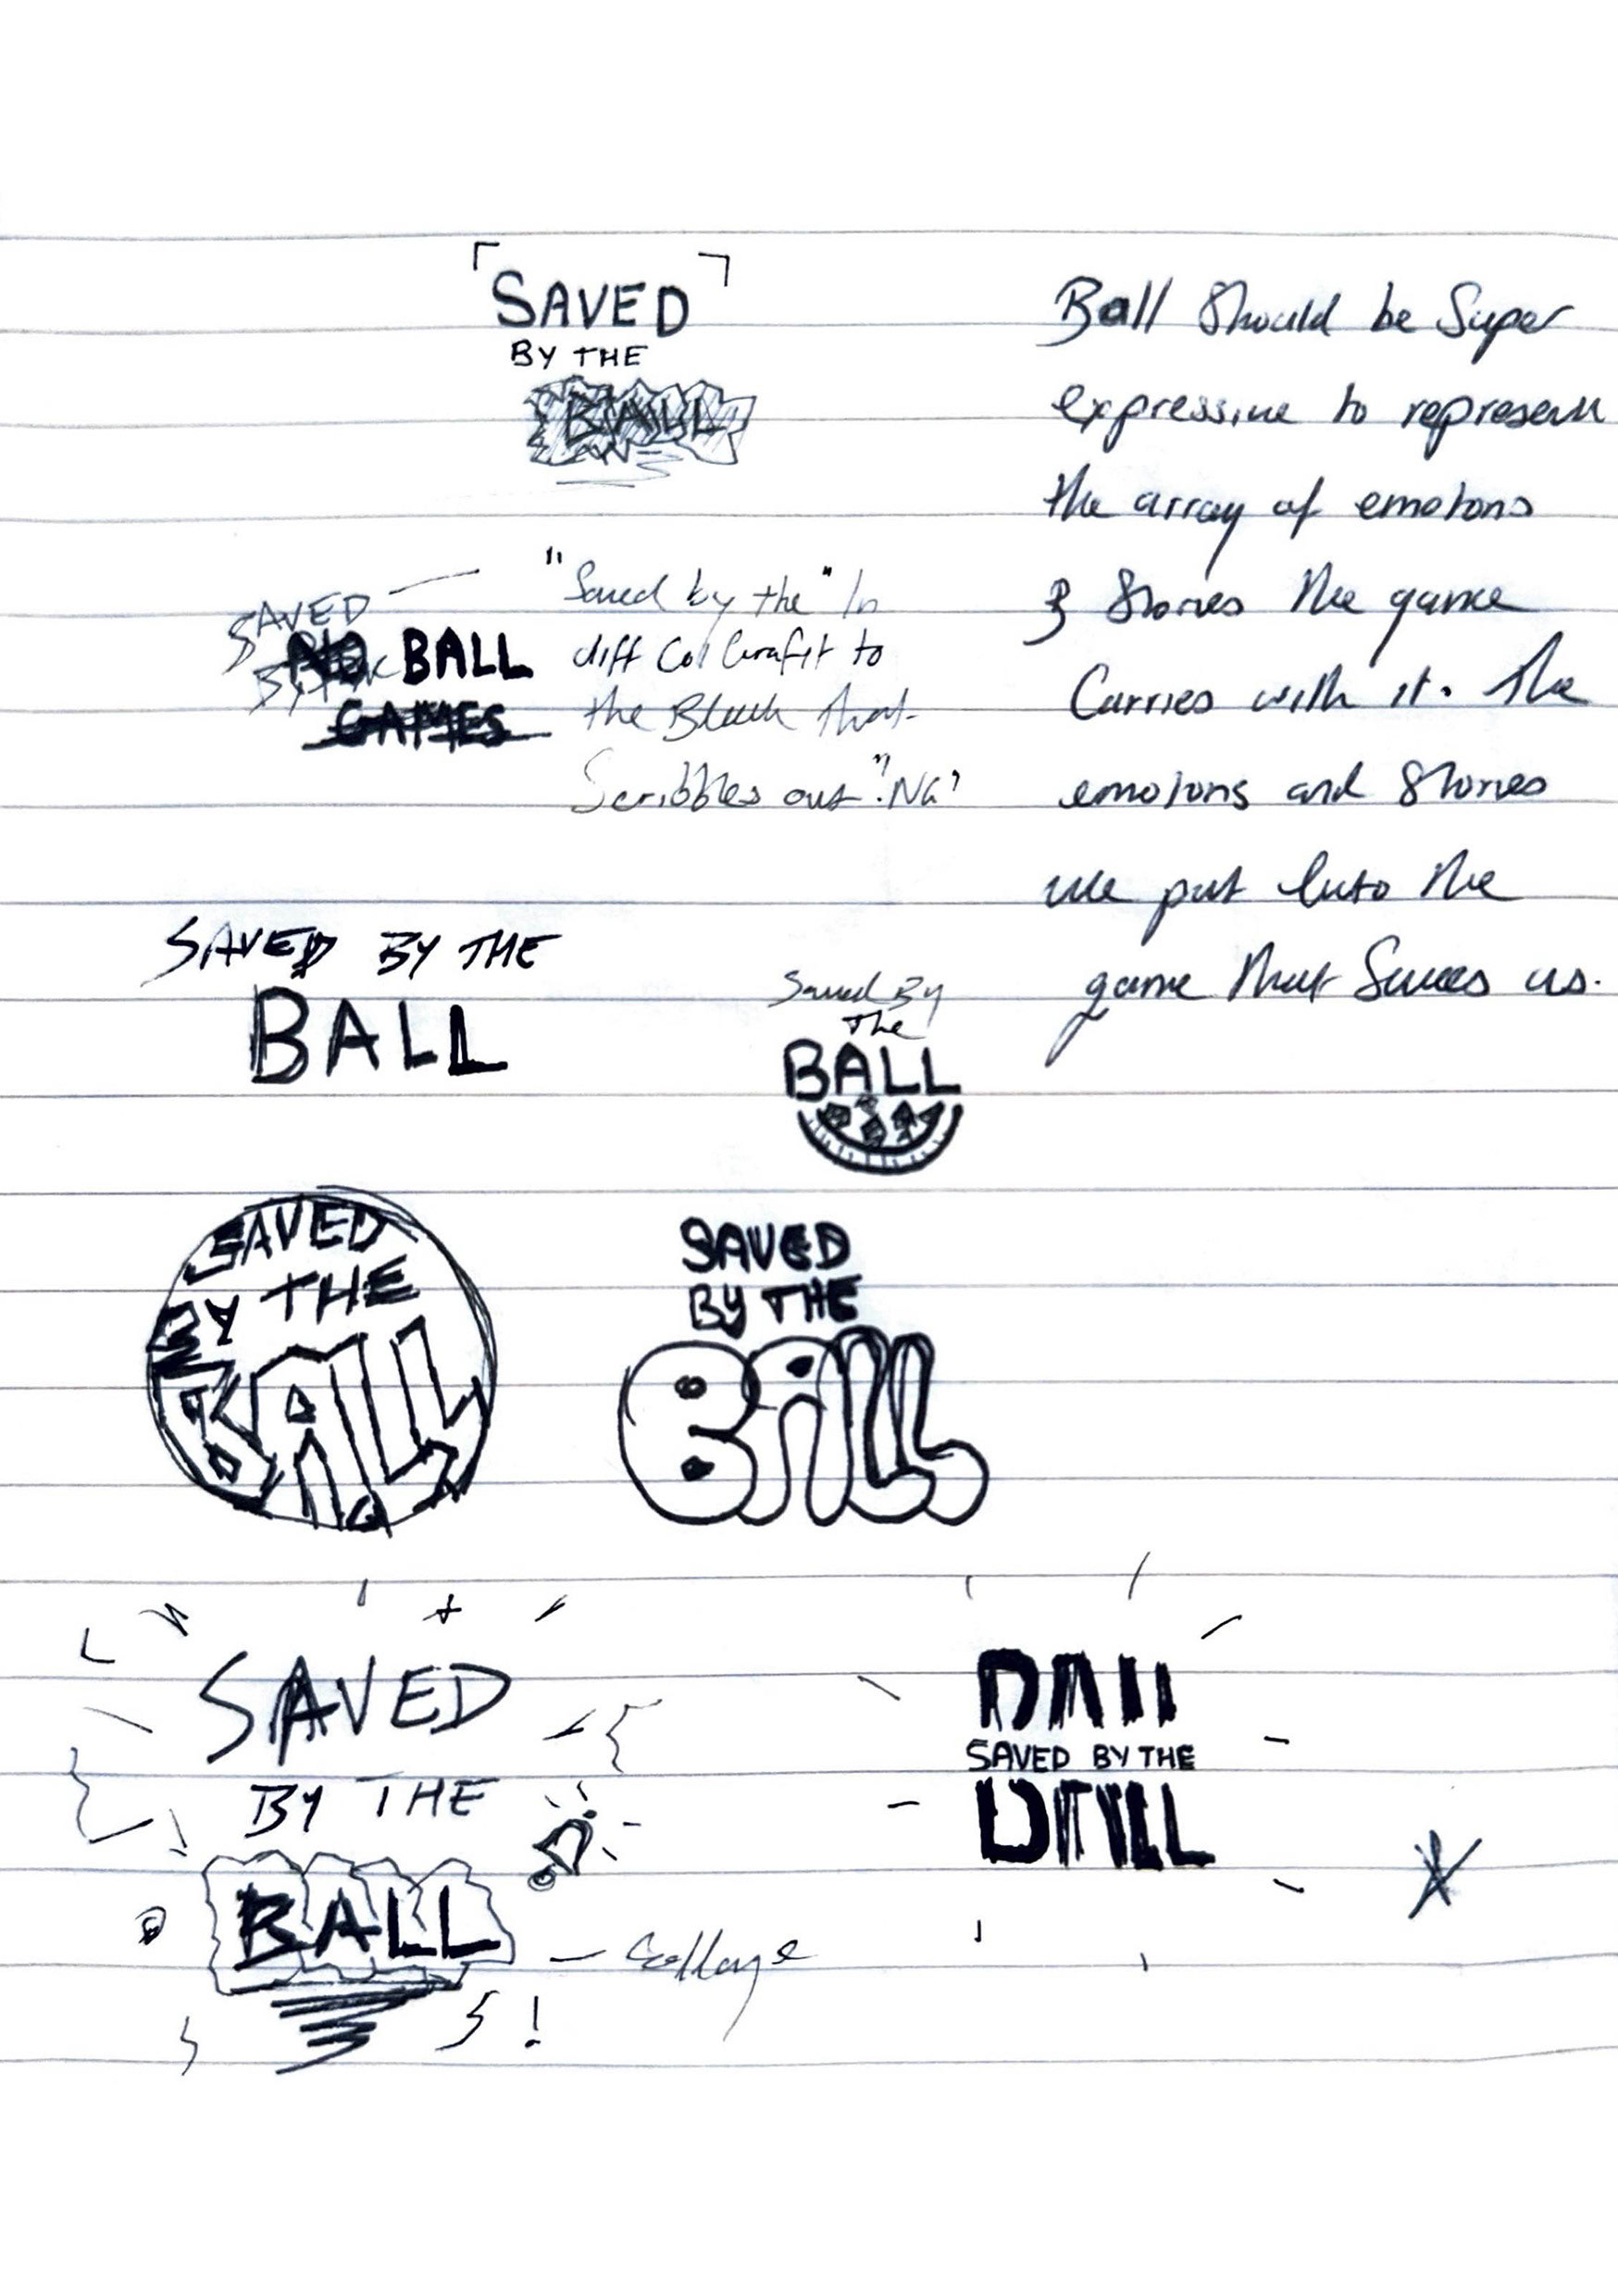 SAVED
BY THE
BALL
Ball should be super
expressive to represent
the array of emotions
& stories the game
carries with it. The
emotions and stories
we put into the
game that saves us.
SAVED
BY THE
NO BALL
GAMES
"Saved by the" in
diff col Grafit to
the Black that
Scribbles out "No"
SAVED BY THE
BALL
Saved By
The
BALL
SAVED
BY THE
BALL
SAVED
BY THE
BALL
SAVED
BY THE
BALL
- Collage
BALL
SAVED BY THE
BALL